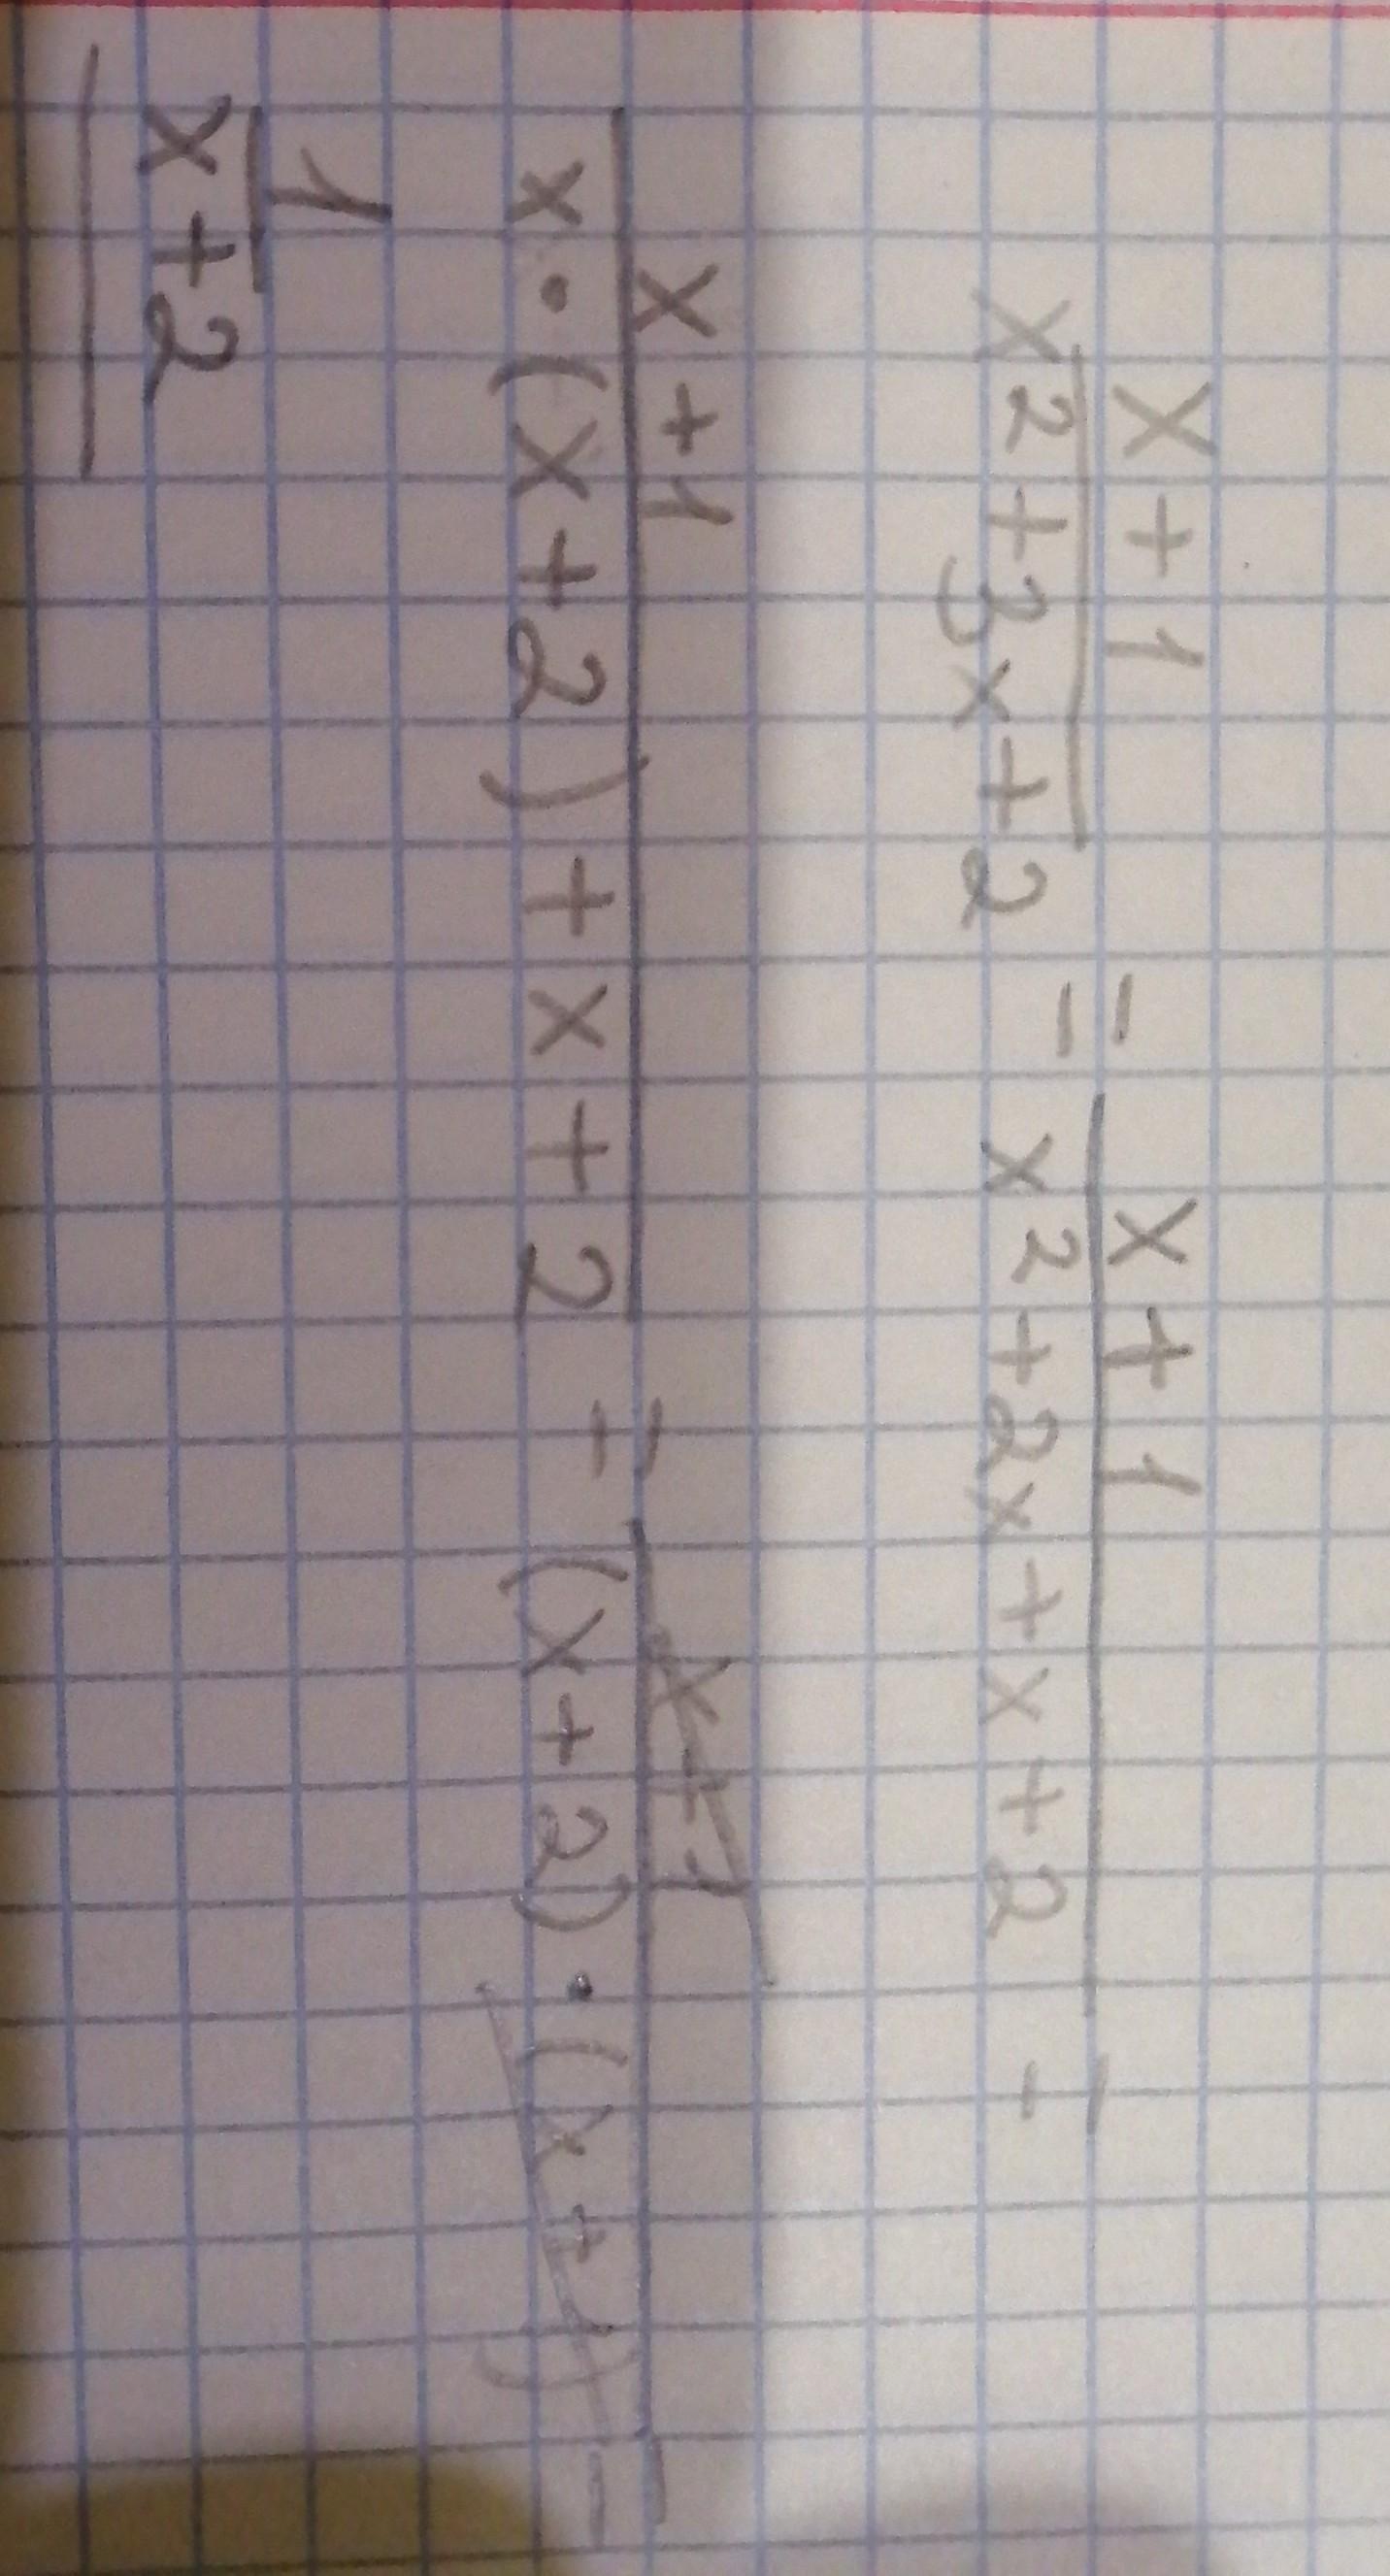 x+1 / x²+3x+2 = x+1 / x²+2x+x+2 =
x+1 / x·(x+2)+x+2 = x+1 / (x+2)·(x+1) =
1 / x+2